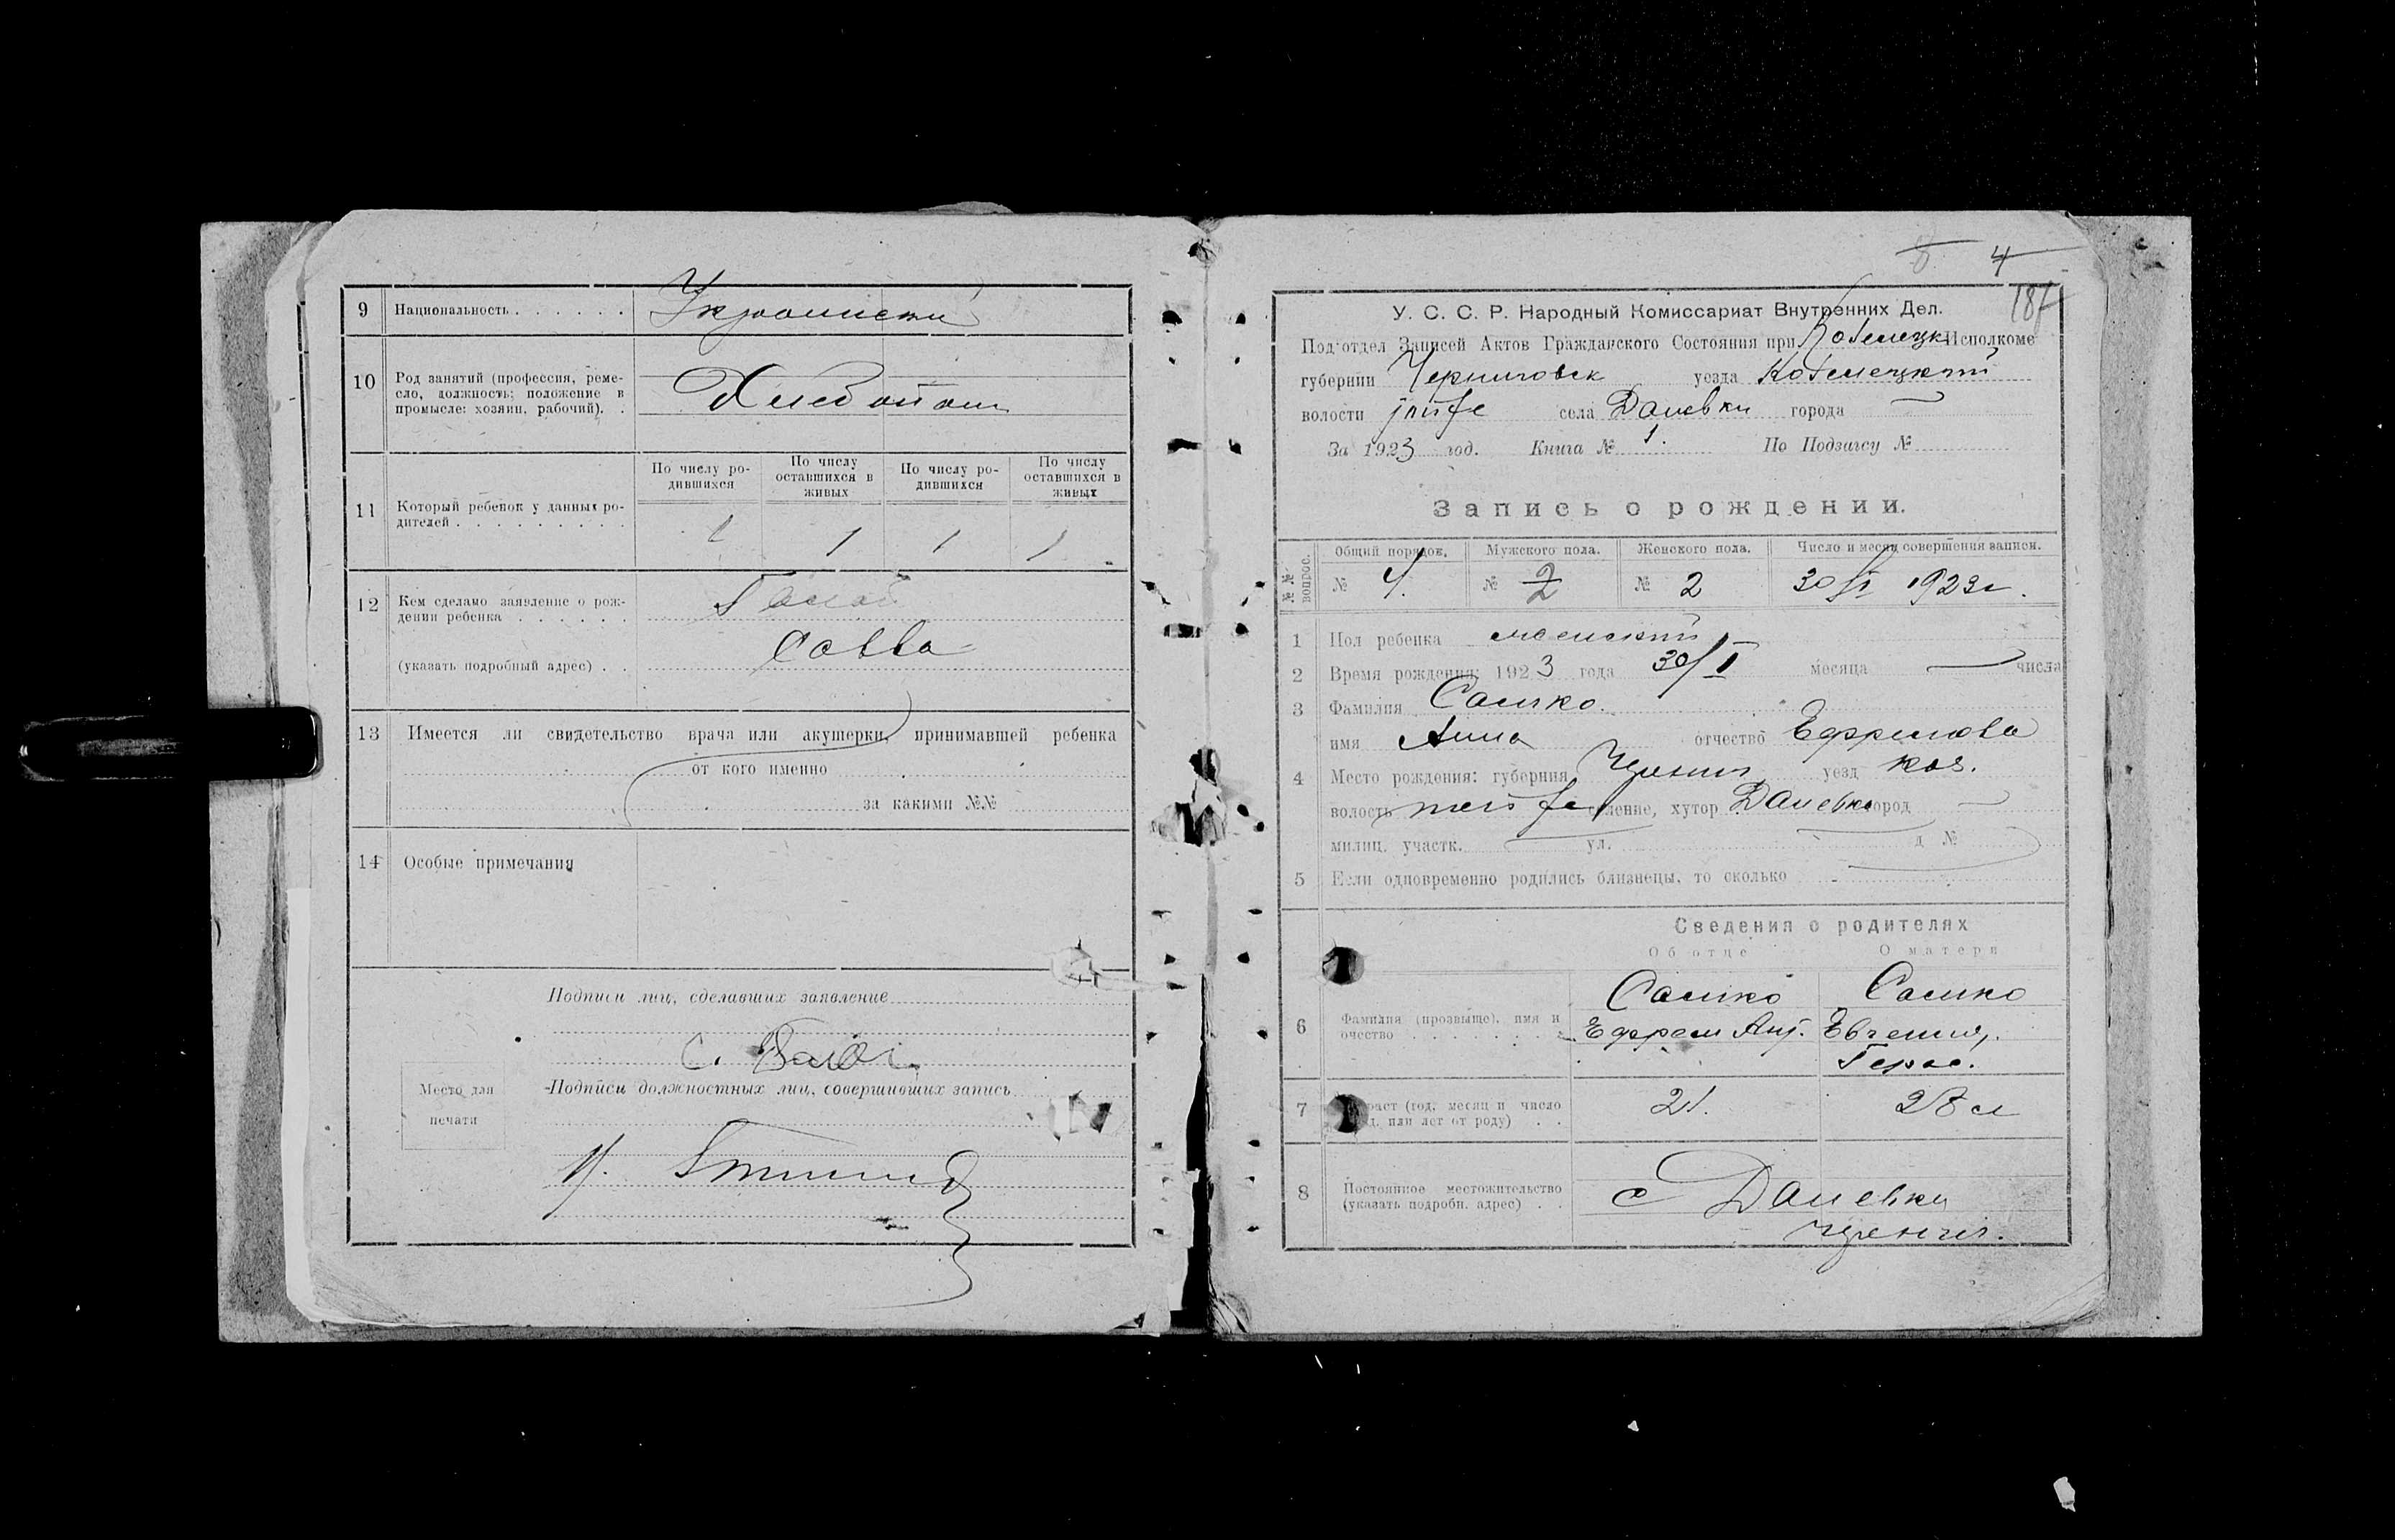 9 Национальность
10 Род занятий (профессия, реме-
сло, должность; положение в
промысле: хозяин, рабочий).
11 Который ребенок у данных ро-
дителей
По числу ро-
дившихся
По числу
оставшихся в
живых
По числу ро-
дившихся
По числу
оставшихся в
живых
1 1 1 1
12 Кем сделано заявление о рож-
дении ребенка
Савва
(указать подробный адрес)
13 Имеется ли свидетельство врача или акушерки, принимавшей ребенка
от кого именно
за какими №№
14 Особые примечания
Подписи лиц, сделавших заявление
С.
Место для
печати
Подписи должностных лиц, совершивших запись
4
У. С. С. Р. Народный Комиссариат Внутренних Дел.
Под'отдел Записей Актов Гражданского Состояния при Исполкоме
губернии Черниговск уезда Козелецкий
волости села Даневки города
За 1923 год. Книга № 1. По Подзагсу №
Запись о рождении.
№№ вопрос.
Общий порядок. Мужского пола. Женского пола. Число и месяц совершения записи.
№ 4. № 2 № 2 30/I 1923 г.
1 Пол ребенка женский
2 Время рождения: 1923 года 30/I месяца числа
3 Фамилия Сашко
имя Анна отчество Ефремова
4 Место рождения: губерния Черниг. уезд Коз.
волость селение, хутор Даневка город
милиц. участк. ул. д №
5 Если одновременно родились близнецы, то сколько
Сведения о родителях
Об отце О матери
6 Фамилия (прозвище), имя и
очество
Сашко
Ефрем Анд.
Сашко
Евгения
Герас.
7 Возраст (год, месяц и число
рожд. или лет от роду)
21. 28 л
8 Постоянное местожительство
(указать подробн. адрес)
с Даневки
Черниг.